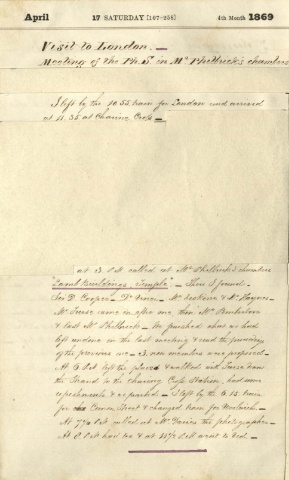 April 17 SATURDAY [107-258] 4th Month 1869
Visit to London.
Meeting of the Ph. S. in Mr Philbrick's chambers
I left by the 10.55 train for London and arrived
at 11.35 at Charing Cross
at 3 P.M. called at Mr Philbrick's chambers
"Lamb Buildings, Temple". There I found
Sir D. Cooper. Mr
Mr came in after me, then Mr Pemberton
& last Mr Philbrick. We finished what we had
left undone in the last meeting & read the
of the previous we. 3 new members are proposed.
At 6 P.M. left the place & walked with
the Strand to the Charing Cross Station, had some
refreshments & we parted. I left by the 6.15 train
for Street & changed train for Woolwich.
At 7 P.M. Met Mr Davies the photographer.
At 8 P.M. had tea & at P.M. went to bed.